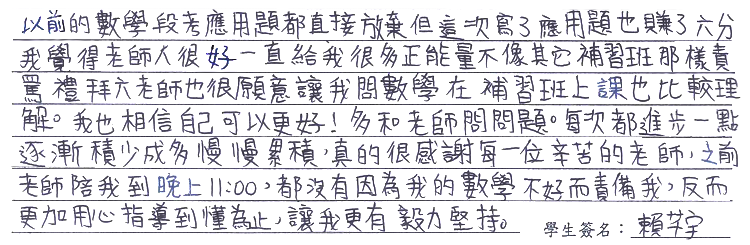 以前的數學段考應用題都直接放棄但這次寫了應用題也賺了六分
我覺得老師人很好一直給我很多正能量不像其它補習班那樣責
罵禮拜六老師也很願意讓我問數學在補習班上課也比較理
解。我也相信自己可以更好！多和老師問問題。每次都進步一點
逐漸積少成多慢慢累積，真的很感謝每一位辛苦的老師，之前
老師陪我到晚上11:00，都沒有因為我的數學不好而責備我，反而
更加用心指導到懂為止，讓我更有毅力堅持。 學生簽名：賴